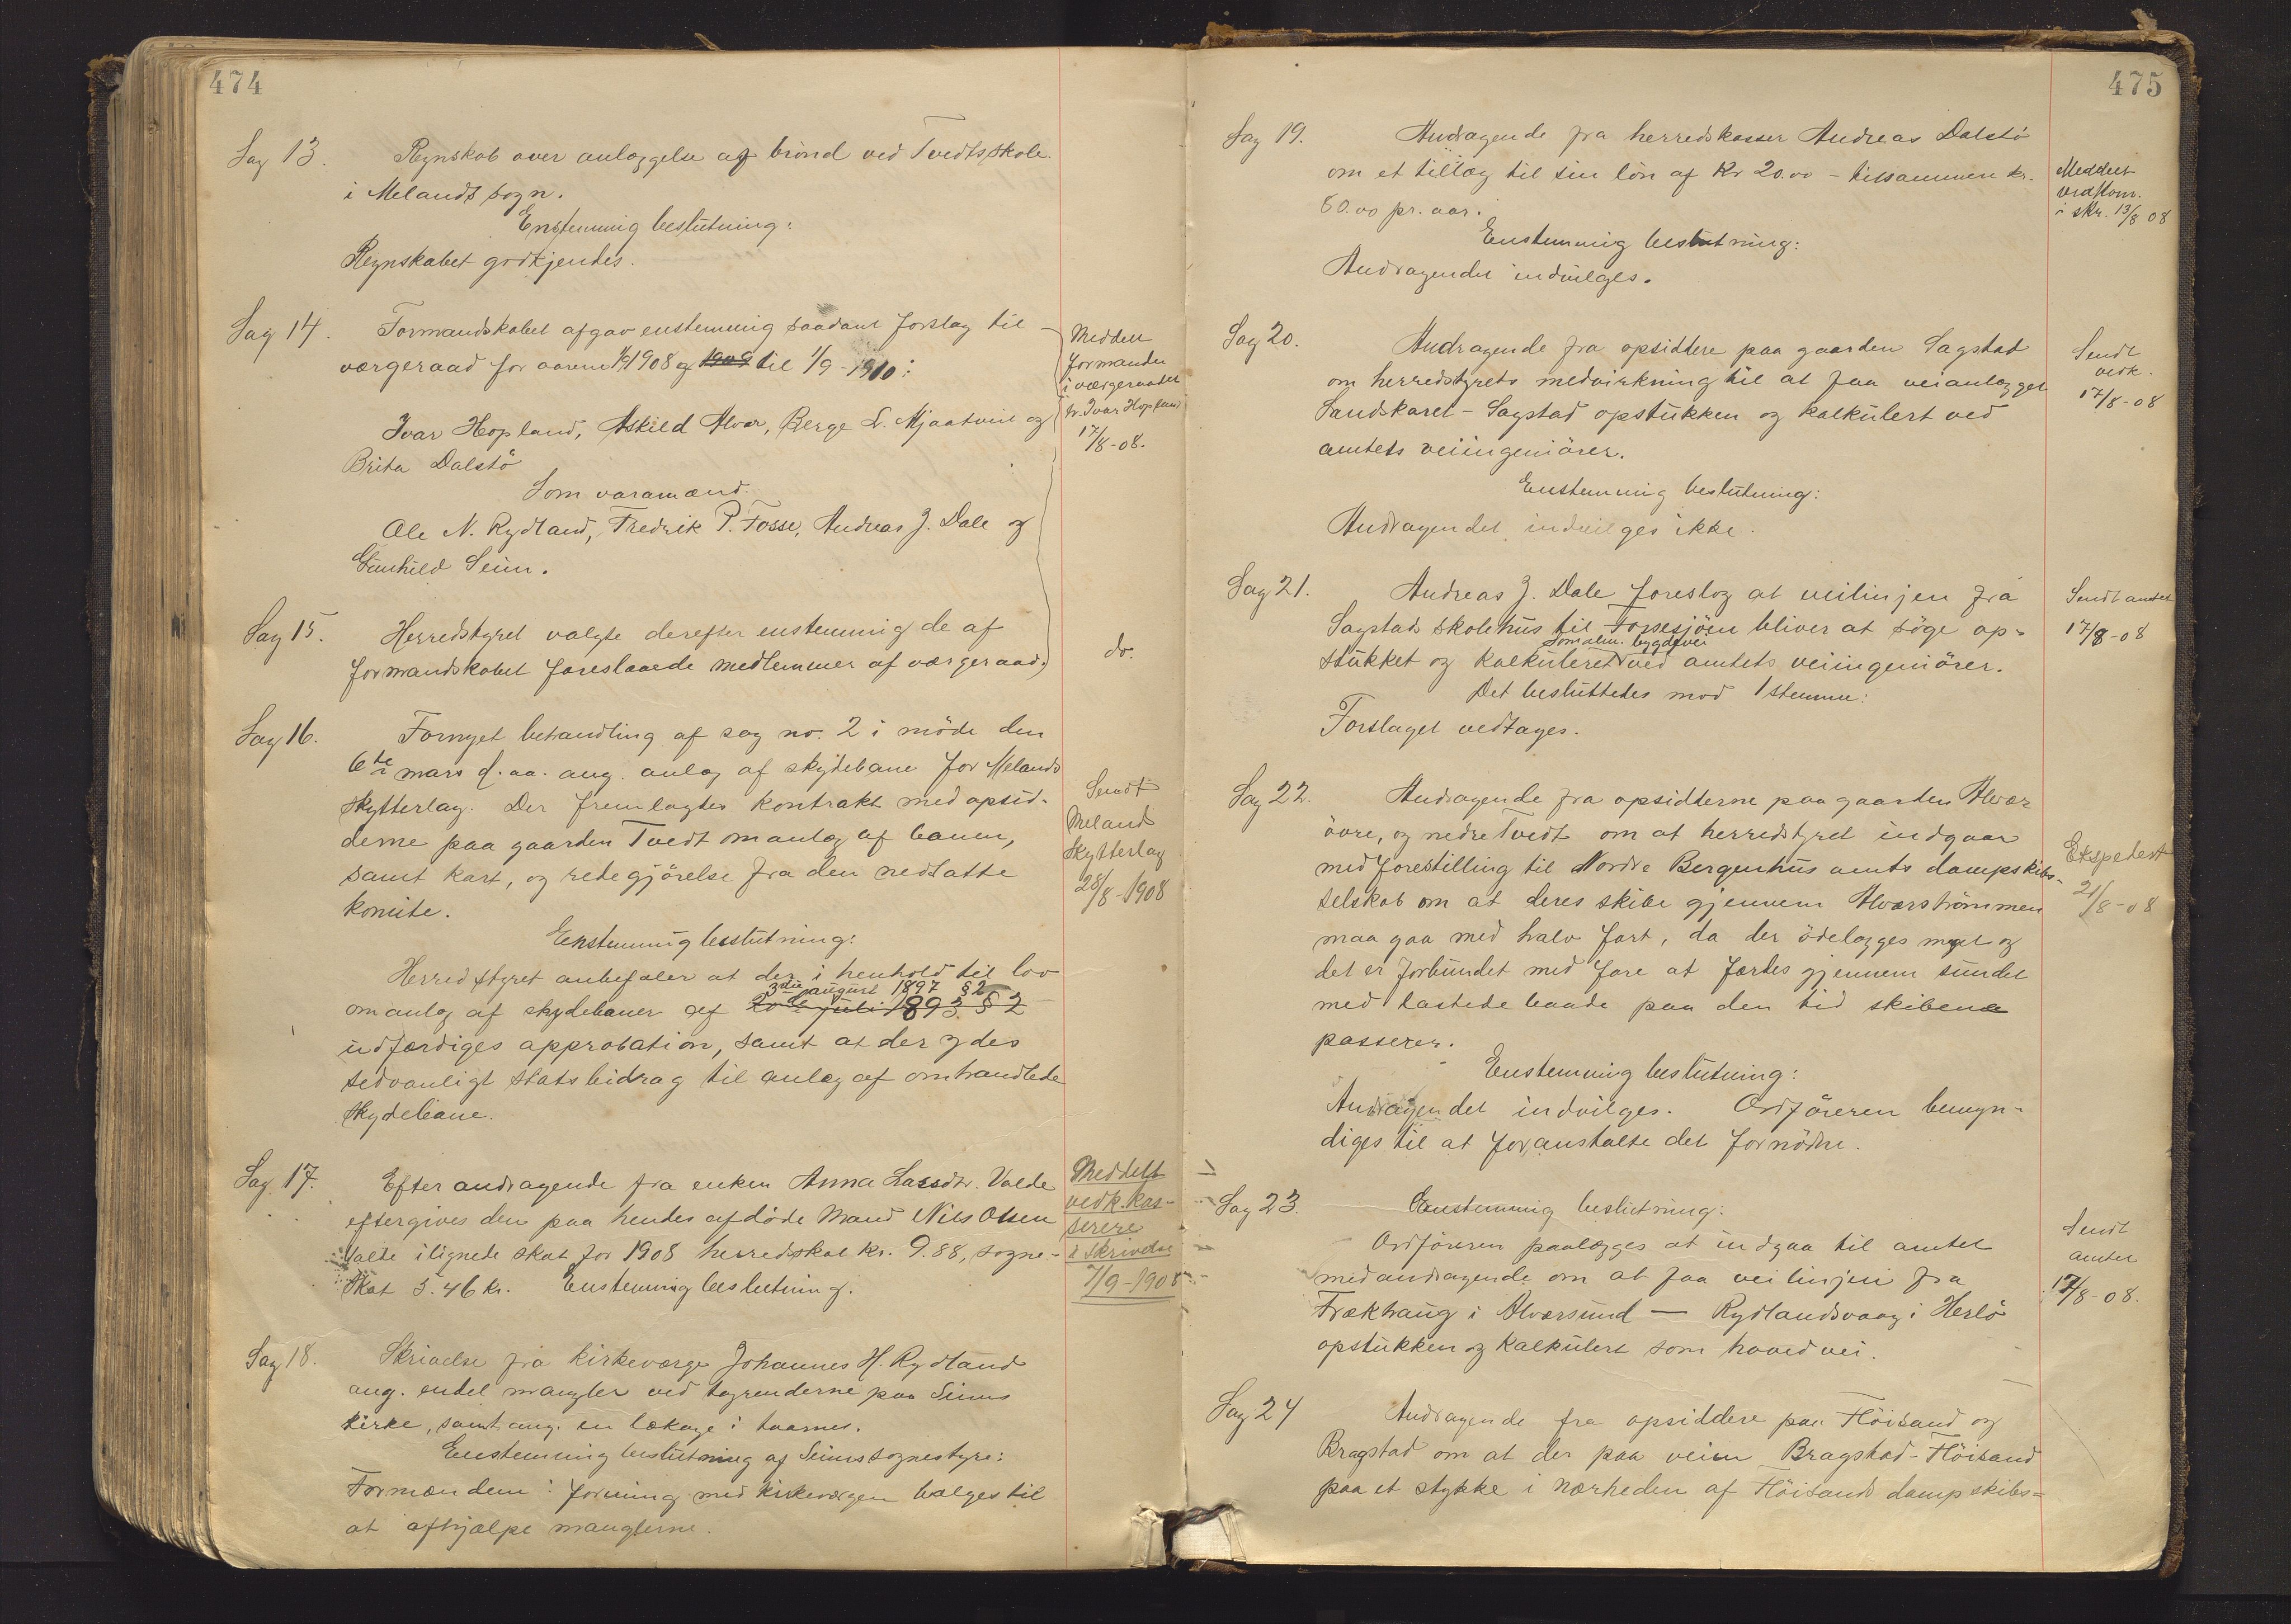 474
Sag 13. Regnskab over anlæggelse af brönd ved Tvedts skole
i Melands sogn.
Enstemmig beslutning:
Regnskabet godkjendes.
Sag 14. Formandskabet afgav enstemmig saadant forslag til
værgeraad for aarene 1/9 1908 og 1909 til 1/9-1910:
Ivar Hopland, Askild Alvær, Berge L. Mjaatveit og
Brita Dalstö
Som varamænd.
Ole N. Rydland, Fredrik P. Fosse, Andreas J. Dale og
Gunhild Seim.
Meddelt
formanden
i værgeraadet
hr. Ivar Hopland
17/8-08.
Sag 15. Herredstyret valgte derefter enstemmig de af
formandskabet foreslaaede medlemmer af værgeraad.
do.
Sag 16. Fornyet behandling af sag no. 2 i möde den
6te mars d. aa. ang. anlæg af skydebane for Melands
skytterlag. Der fremlagtes kontrakt med opsid-
derne paa gaarden Tvedt om anlæg af banen,
samt kart, og redegjörelse fra den nedsatte
komite.
Sendt
Meland
Skytterlag
28/8-1908
Enstemmig beslutning:
Herredstyret anbefaler at der i henhold til lov
3die august 1897 § 2
om anlæg af skydebaner af 20de juli 1893 § 2
udfærdiges approbation, samt at der ydes
sedvanligt statsbidrag til anlæg af omhandlede
skydebane.
Sag 17. Efter andragende fra enken Anna Larsdtr. Valde
eftergives den paa hendes afdöde mand Nils Olsen
Valde ilignede skat for 1908 herredskat kr. 9.88, sogne-
skat 5.46 kr. Enstemmig beslutning.
Meddelt
vedk. kas-
serere
i skrivelse
7/9-1908
Sag 18. Skrivelse fra kirkeværge Johannes H. Rydland
ang. endel mangler ved tagrenderne paa Seims
kirke, samt ang. en lækage i taarnet.
Enstemmig beslutning af Seims sognestyre:
Formanden i forening med kirkeværgen vælges til
at afhjælpe manglerne.
475
Sag 19. Andragende fra herredskasser Andreas Dalstö
om et tillæg til sin lön af Kr 20.00 - tilsammen kr.
60.00 pr. aar.
Enstemmig beslutning:
Andragendet indvilges.
Meddelt
vedkom.
i skr. 13/8 08
Sag 20. Andragende fra opsiddere paa gaarden Sagstad
om herredstyrets medvirkning til at faa veianlægget
Sandskaret - Sagstad opstukken og kalkulert ved
amtets veiingeniörer.
Enstemmig beslutning:
Andragendet indvilges ikke.
Sendt
vedk.
17/8-08
Sag 21. Andreas J. Dale foreslog at veilinjen fra
Sagstads skolehus til Fossesjöen bliver at söge op-
som alm. bygdevei
stukket og kalkuleret ved amtets veiingeniörer.
Det besluttedes mod 1 stemme:
Forslaget vedtages.
Sendt amtet
17/8-08
Sag 22. Andragende fra opsidderne paa gaarden Alvær
övre, og nedre Tvedt om at herredstyret indgaar
med forestilling til Nordre Bergenhus amts dampskibs-
selskab om at deres skibe gjennem Alværströmmen
maa gaa med halv fart, da der ödelægges meget og
det er forbundet med fare at færdes gjennem sundet
med lastede baade paa den tid skibene
passerer.
Enstemmig beslutning:
Andragendet indvilges. Ordföreren bemyn-
diges til at foranstalte det fornödne.
Ekspedert
21/8-08
Sag 23. Enstemmig beslutning:
Ordföreren paalægges at indgaa til amtet
med andragende om at faa veilinjen fra
Frækhaug i Alversund - Rydlandsvaag i Herlö
opstukken og kalkulert som hovedvei.
Sendt
amtet
17/8-08.
Sag 24 Andragende fra opsiddere paa Flöisand og
Bragstad om at der paa veien Bragstad-Flöisand
paa et stykke i nærheden af Flöisands dampskibs=